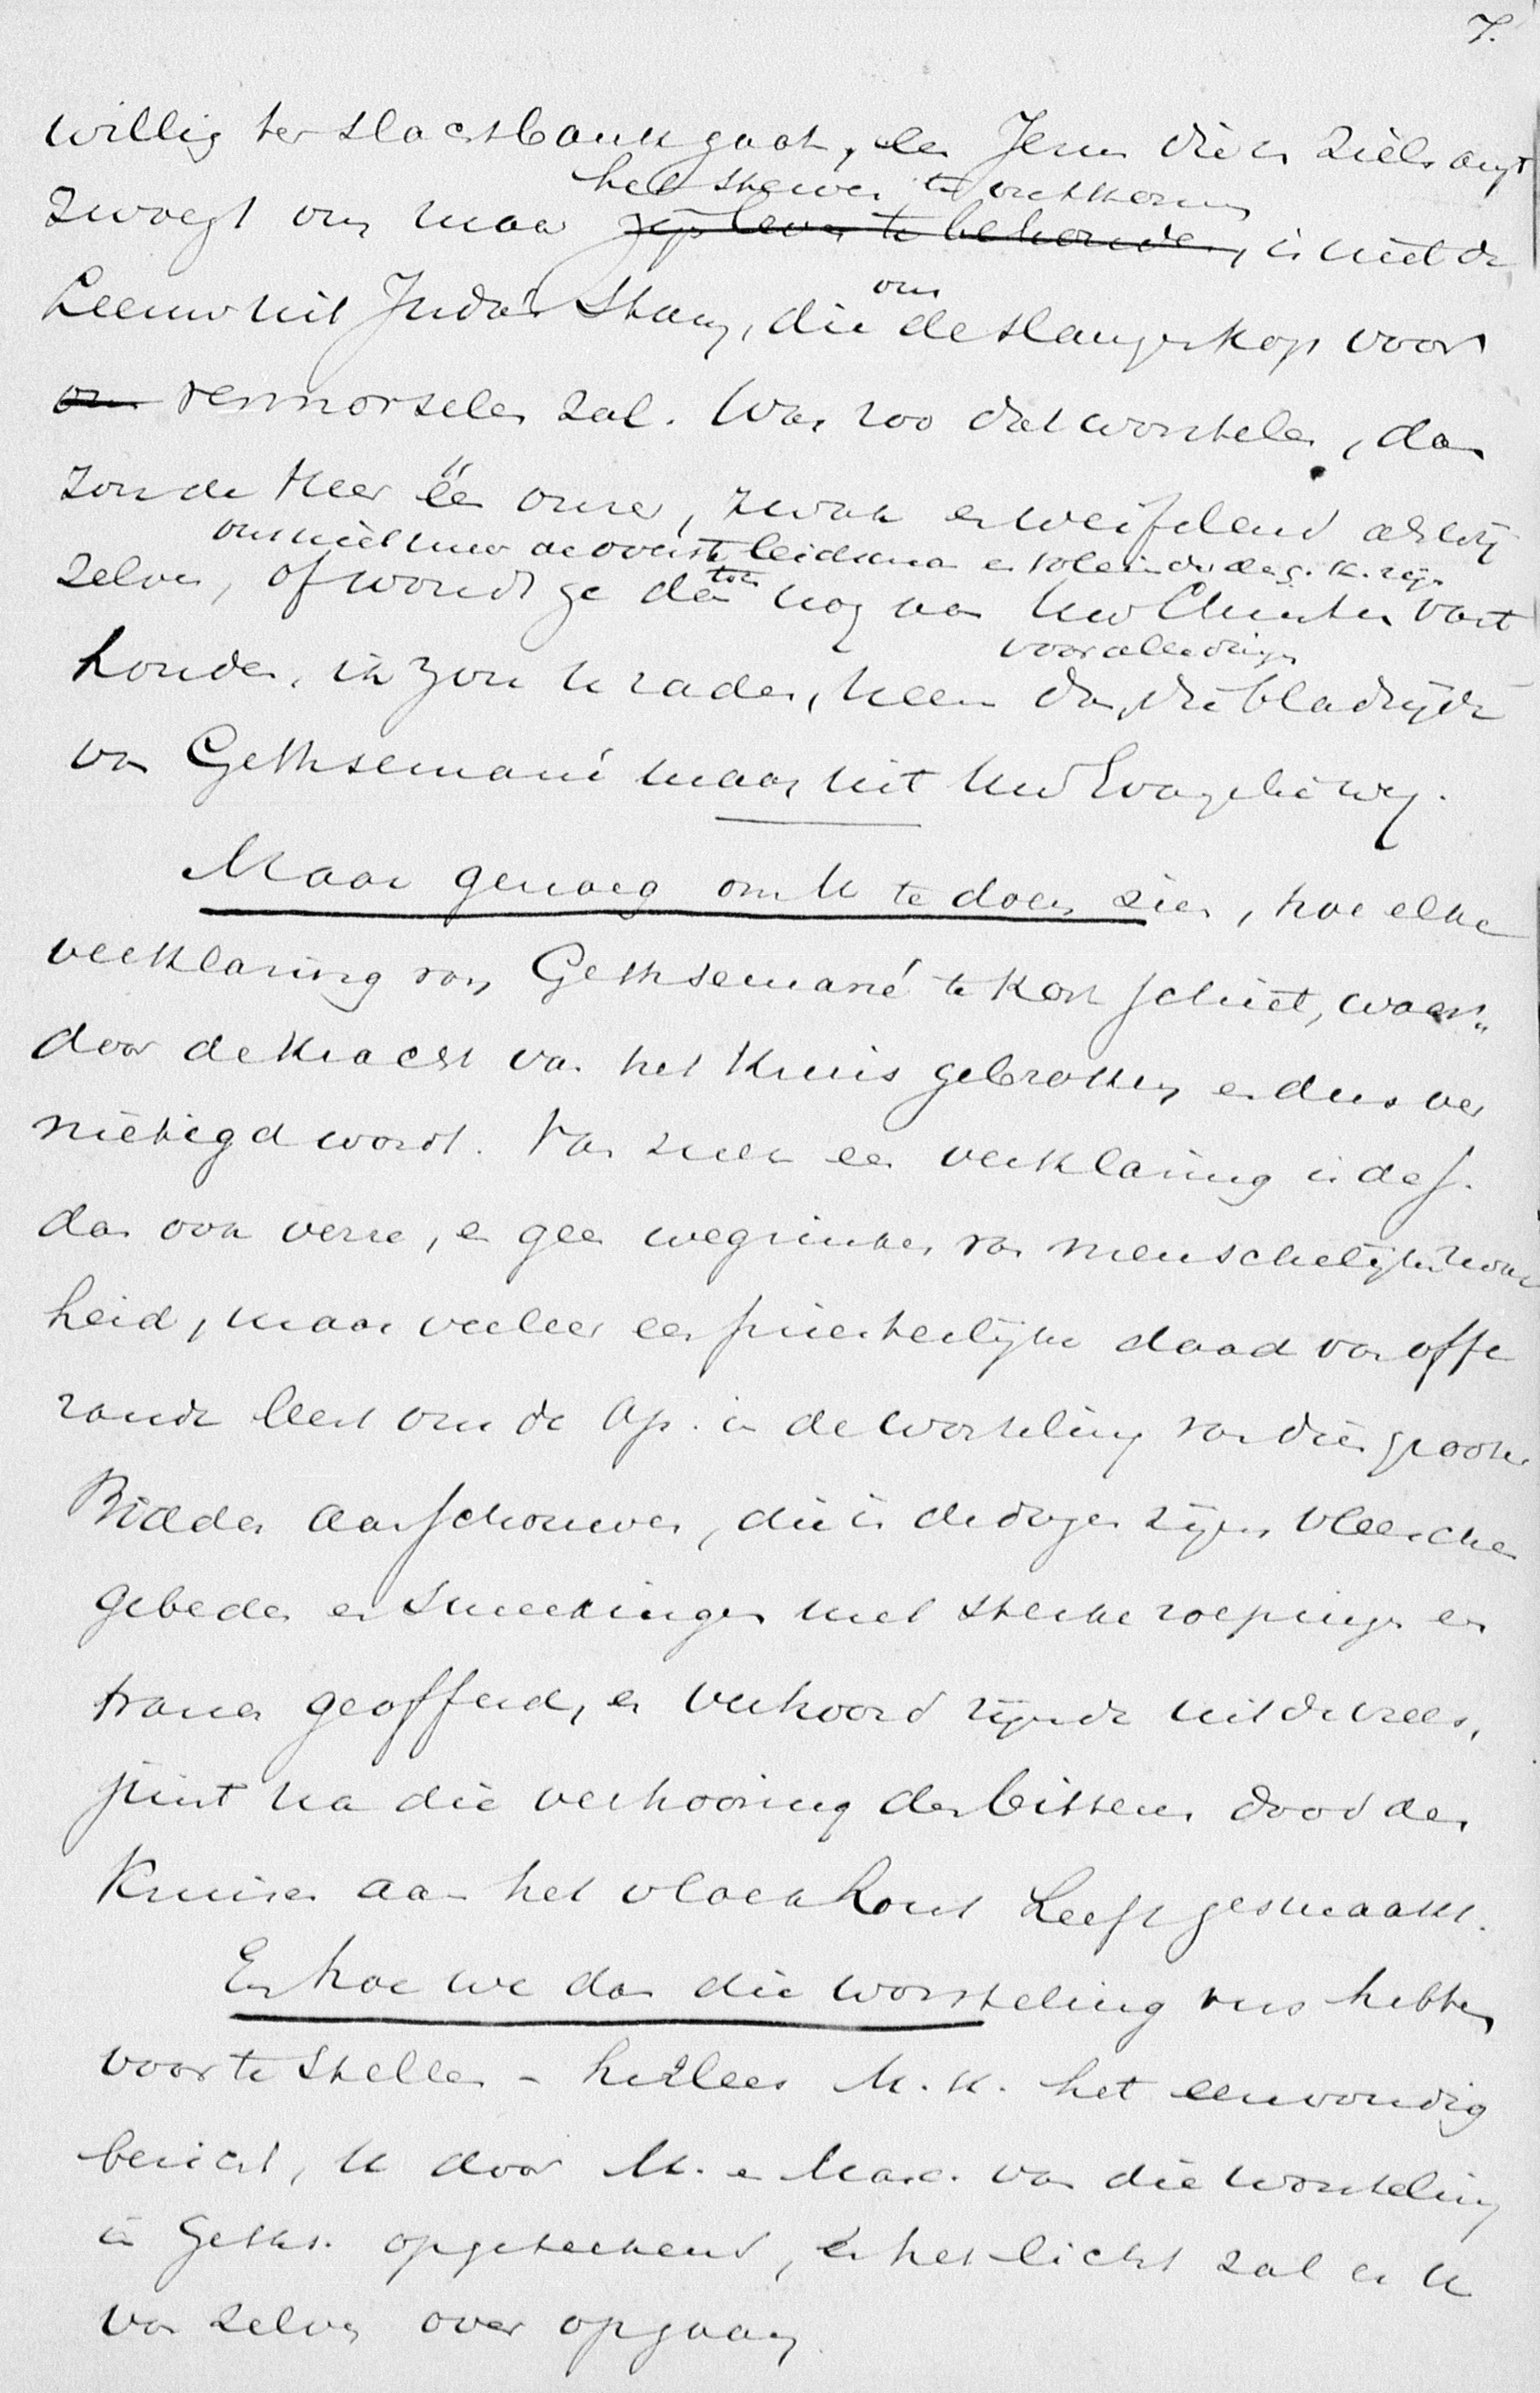 7.
willig ter slachtbank gaat, een Jezus die in zielsangst
het sterven te ontkomen
zwoegt om maar zijn leven te behouden, is niet de
Leeuw uit Juda's Stam, die om de slangenkop voor
ons vermorselen zal. Was zoo dat worstelen, dan
zou de Heer één onzer, zwak en weifelend als wij
ons niet meer de overste leidsman en voleinder des g. k. zijn
zelven, of woudt ge dan toch nog van Uw Christus vast
vooralledings
houden, ik zou U raden, neem dan, die bladzijde
van Gethsemané maar uit Uw Evangelie weg.
Maar genoeg om U te doen zien, hoe elke
verklaring van Gethsemané te kort schiet, waar„
door de kracht van het Kruis gebroken en dus ver
nietigd wordt. Van zulk een verklaring is de f.
dan ook verre, en geen wegzinken van menschelijke zwak
heid, maar veeleer een priesterlijke daad van offe
rande leert ons de Ap. in de worsteling van dien grooten
Bidder aanschouwen, die in de dagen zijns vleesches
gebeden en smeekingen met sterke roepingen en
tranen geofferd, en verhoord zijnde uit de vrees,
juist na die verhooring den bitteren dood des
Kruises aan het vloekhout heeft gesmaakt.
En hoe we dan die worsteling ons hebben
voor te stellen - herlees M. K. het eenvoudig
bericht, U door M. en Marc. van die worsteling
in Geths. opgeteekend, en het licht zal er U
van zelven over opgaan.